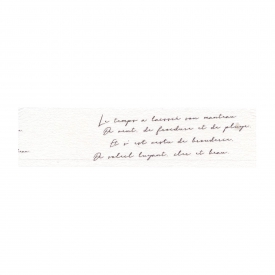 Le temps a laissé son manteau
De vent, de froidure et de pluie,
Et s'est vestu de brouderie,
De soleil luyant, cler et beau.